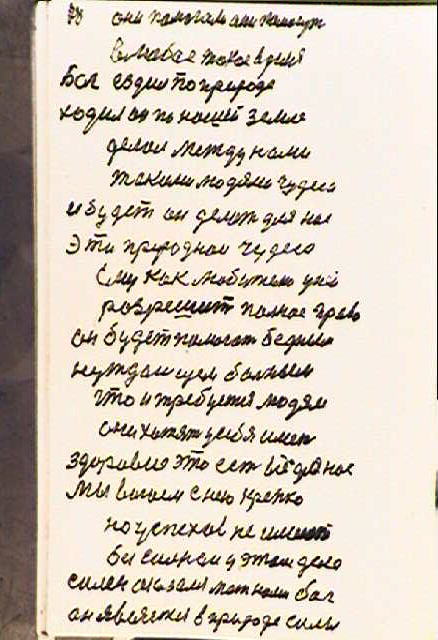 они помогали они помогут
в любое такое время
Бог ездил по природе
ходил он по нашей земле
делал между нами
такими людями чудеса
и будет он делать для нас
Эти природнои чудеса
Ему как любителю
разрешит полное право
он будет помогать бедным
нуждающем больным
что и требуется людям
они хотят у себя иметь
здоровие это есть для нас
Мы воюем с нею крепко
но успехов не имеем
бессилнои у этом дело
силен оказался между нами бог
он является в природе силы